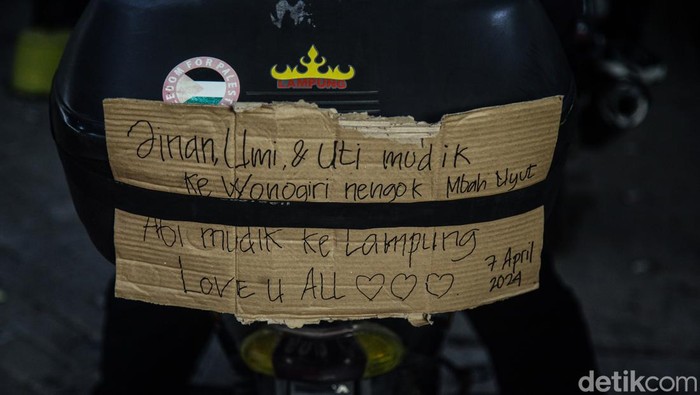 EDOM FOR PALEST
LAMPUNG
Jinan, Umi, & Uti mudik
ke Wonogiri nengok Mbah Uyut
Abi mudik ke Lampung
Love u ALL ♡♡♡
7 April
2024
detikcom